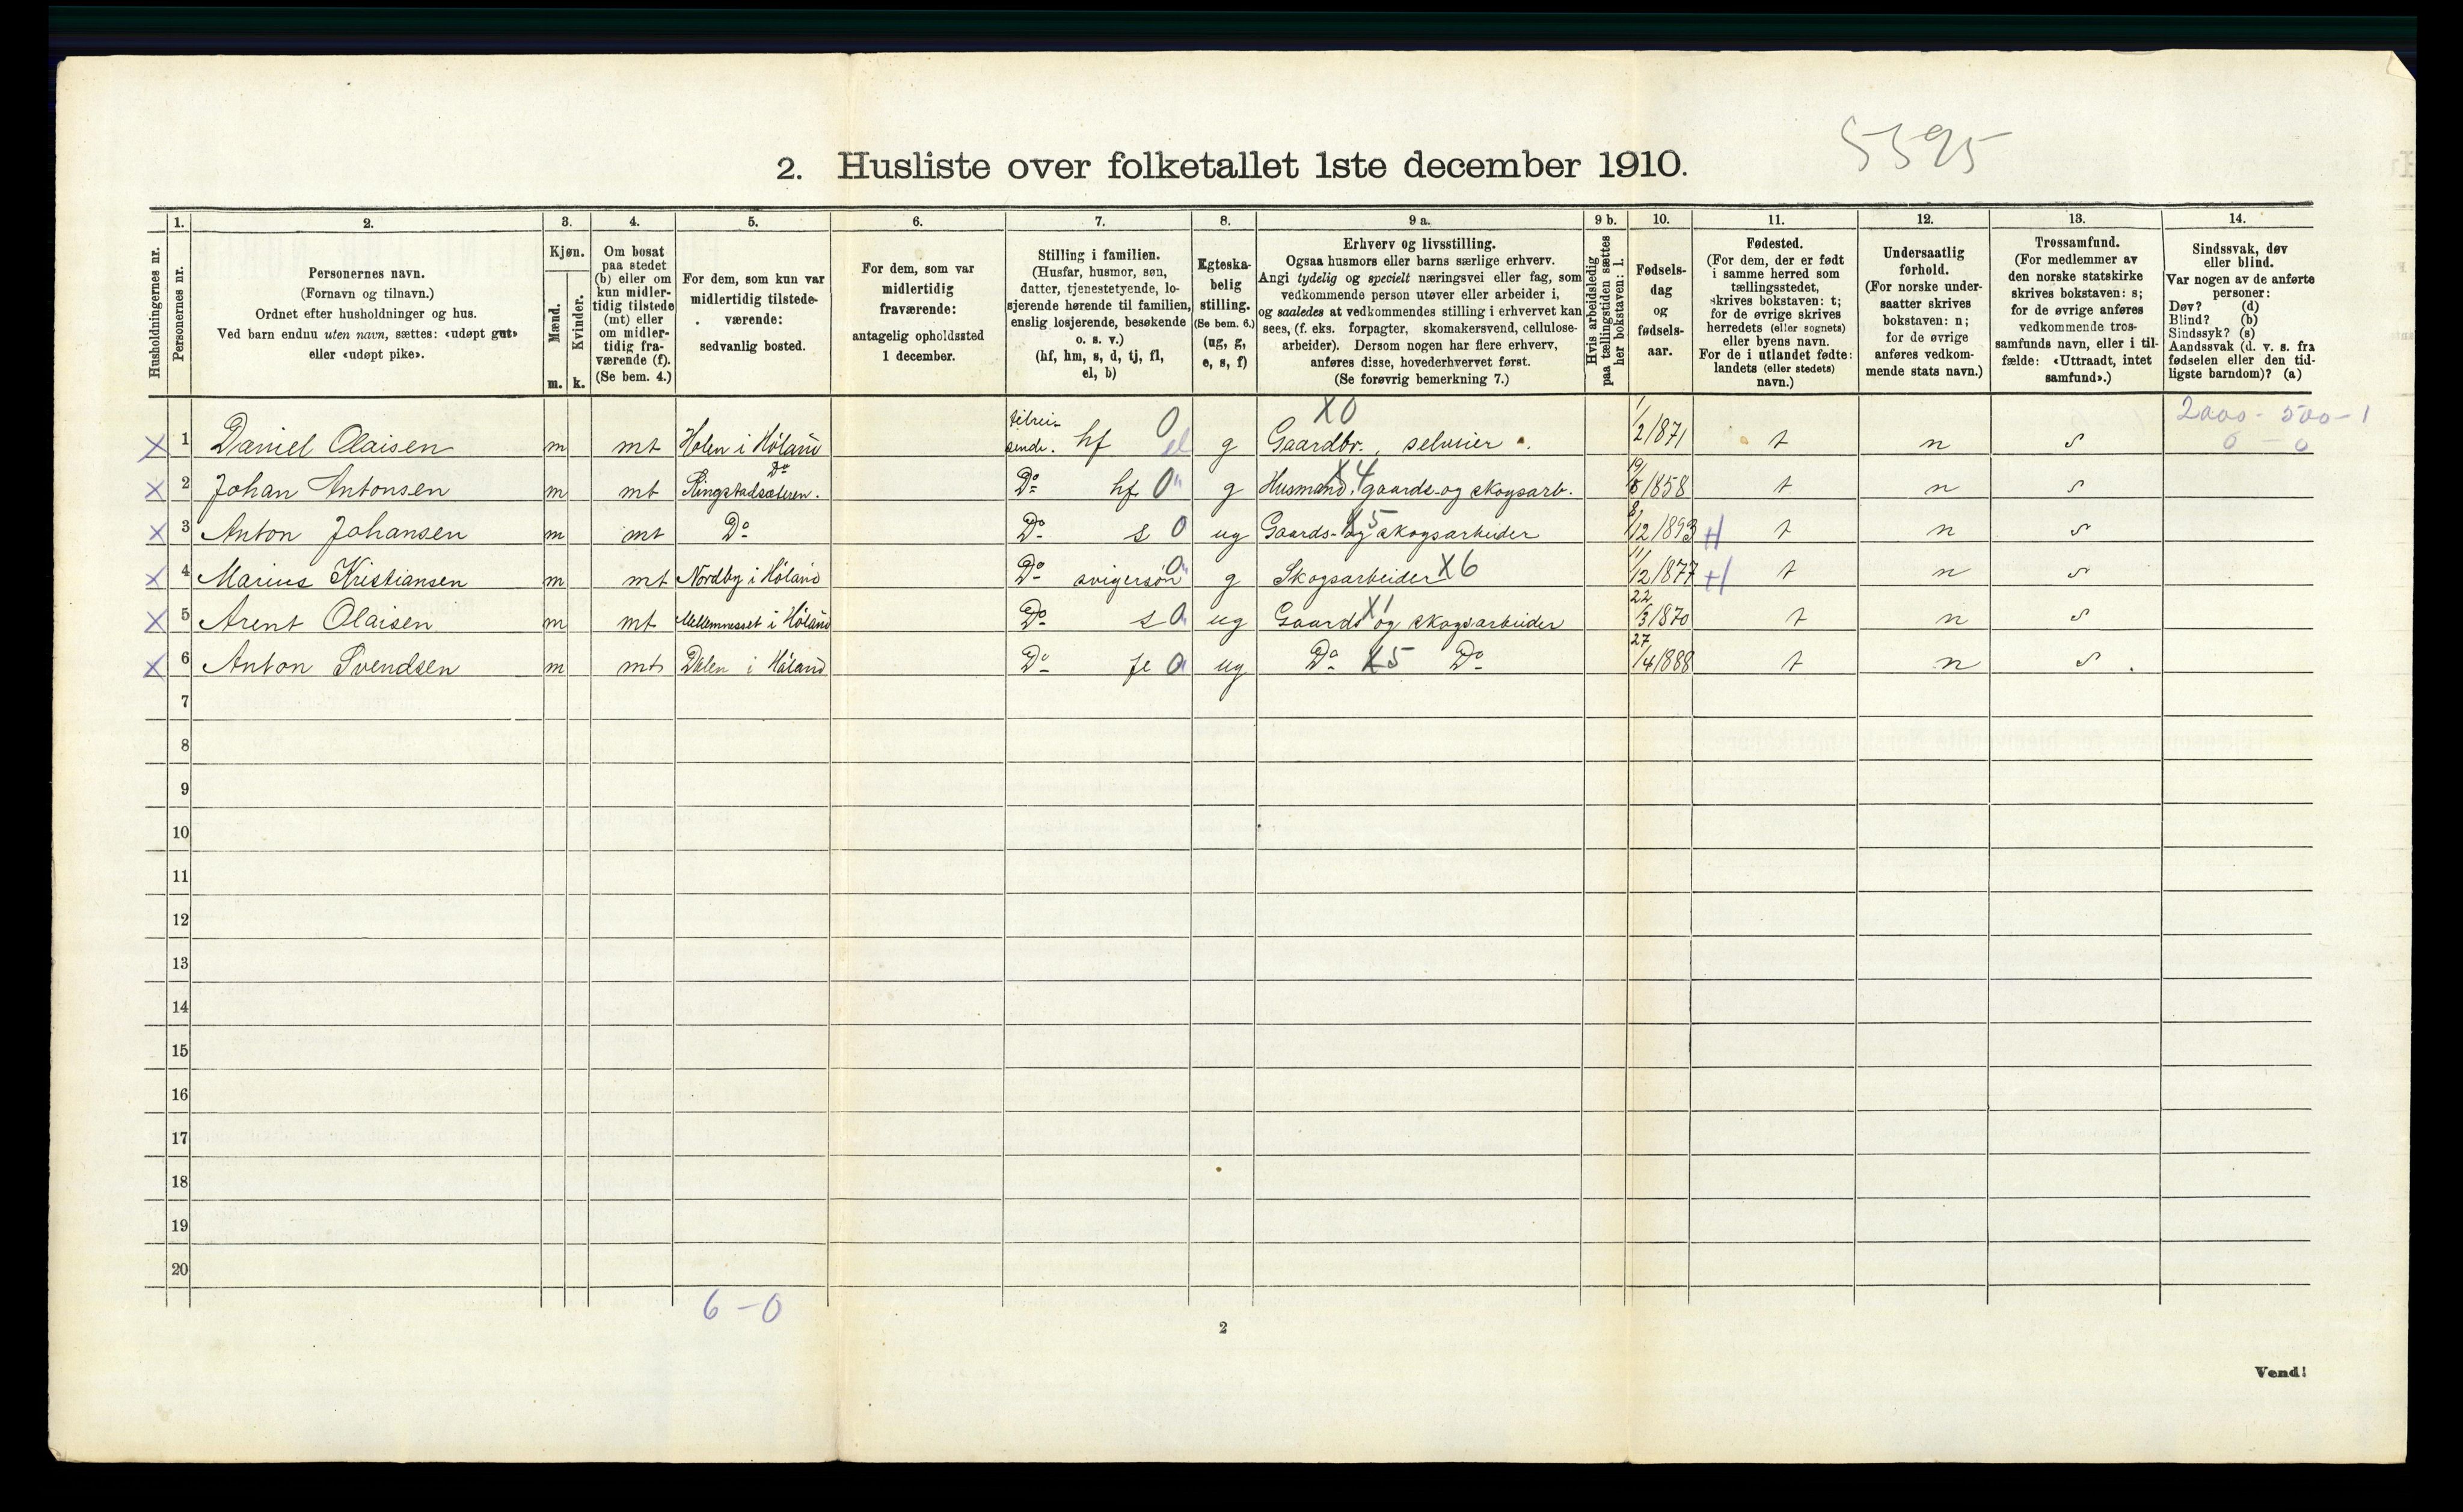 5395
2. Husliste over folketallet 1ste december 1910.
Husholdningernes nr.
1. Personernes nr.
2. Personernes navn.
(Fornavn og tilnavn.)
Ordnet efter husholdninger og hus.
Ved barn endnu uten navn, sættes: «udøpt gut»
eller «udøpt pike».
3. Kjøn.
Mænd. m.
Kvinder. k.
4. Om bosat
paa stedet
(b) eller om
kun midler-
tidig tilstede
(mt) eller
om midler-
tidig fra-
værende (f).
(Se bem. 4.)
5. For dem, som kun var
midlertidig tilstede-
værende:
sedvanlig bosted.
6. For dem, som var
midlertidig
fraværende:
antagelig opholdssted
1 december.
7. Stilling i familien.
(Husfar, husmor, søn,
datter, tjenestetyende, lo-
sjerende hørende til familien,
enslig losjerende, besøkende
o. s. v.)
(hf, hm, s, d, tj, fl,
el, b)
8. Egteska-
belig
stilling.
(Se bem. 6.)
(ug, g,
e, s, f)
9 a. Erhverv og livsstilling.
Ogsaa husmors eller barns særlige erhverv.
Angi tydelig og specielt næringsvei eller fag, som
vedkommende person utøver eller arbeider i,
og saaledes at vedkommendes stilling i erhvervet kan
sees, (f. eks. forpagter, skomakersvend, cellulose-
arbeider). Dersom nogen har flere erhverv,
anføres disse, hovederhvervet først.
(Se forøvrig bemerkning 7.)
9 b. Hvis arbeidsledig
paa tællingstiden sættes
her bokstaven: l.
10. Fødsels-
dag
og
fødsels-
aar.
11. Fødested.
(For dem, der er født
i samme herred som
tællingsstedet,
skrives bokstaven: t;
for de øvrige skrives
herredets (eller sognets)
eller byens navn.
For de i utlandet fødte:
landets (eller stedets)
navn.)
12. Undersaatlig
forhold.
(For norske under-
saatter skrives
bokstaven: n;
for de øvrige
anføres vedkom-
mende stats navn.)
13. Trossamfund.
(For medlemmer av
den norske statskirke
skrives bokstaven: s;
for de øvrige anføres
vedkommende tros-
samfunds navn, eller i til-
fælde: «Uttraadt, intet
samfund».)
14. Sindssvak, døv
eller blind.
Var nogen av de anførte
personer:
Døv? (d)
Blind? (b)
Sindssyk? (s)
Aandssvak (d. v. s. fra
fødselen eller den tid-
ligste barndom)? (a)
2000 - 500 - 1
0 - 0
X 1 Daniel Olaisen m mt Holen i Höland tilrei-sende. hf 0 el g X0 Gaardbr., selveier. 1/2/871 t n s
X 2 Johan Antonsen m mt Ringstadsæteren. Do Do hf 0 g Husmand, X4 gaards- og skogsarb. 19/5/858 t n s
X 3 Anton Johansen m mt Do Do s 0 ug Gaards- og X5 skogsarbeider 8/12/893 t n s
X 4 Marius Kristiansen m mt Nordby i Höland Do svigersøn 0 g Skogsarbeider X6 11/12/877 t n s
X 5 Arent Olaisen m mt Mellemnesset i Höland Do s 0 ug Gaards X1 og skogsarbeider 22/3/1870 t n s
X 6 Anton Svendsen m mt Dalen i Höland Do fl 0 ug Do X5 Do 27/4/1888 t n s.
7
8
9
10
11
12
13
14
15
16
17
18
19
20
6 - 0
2
Vend!